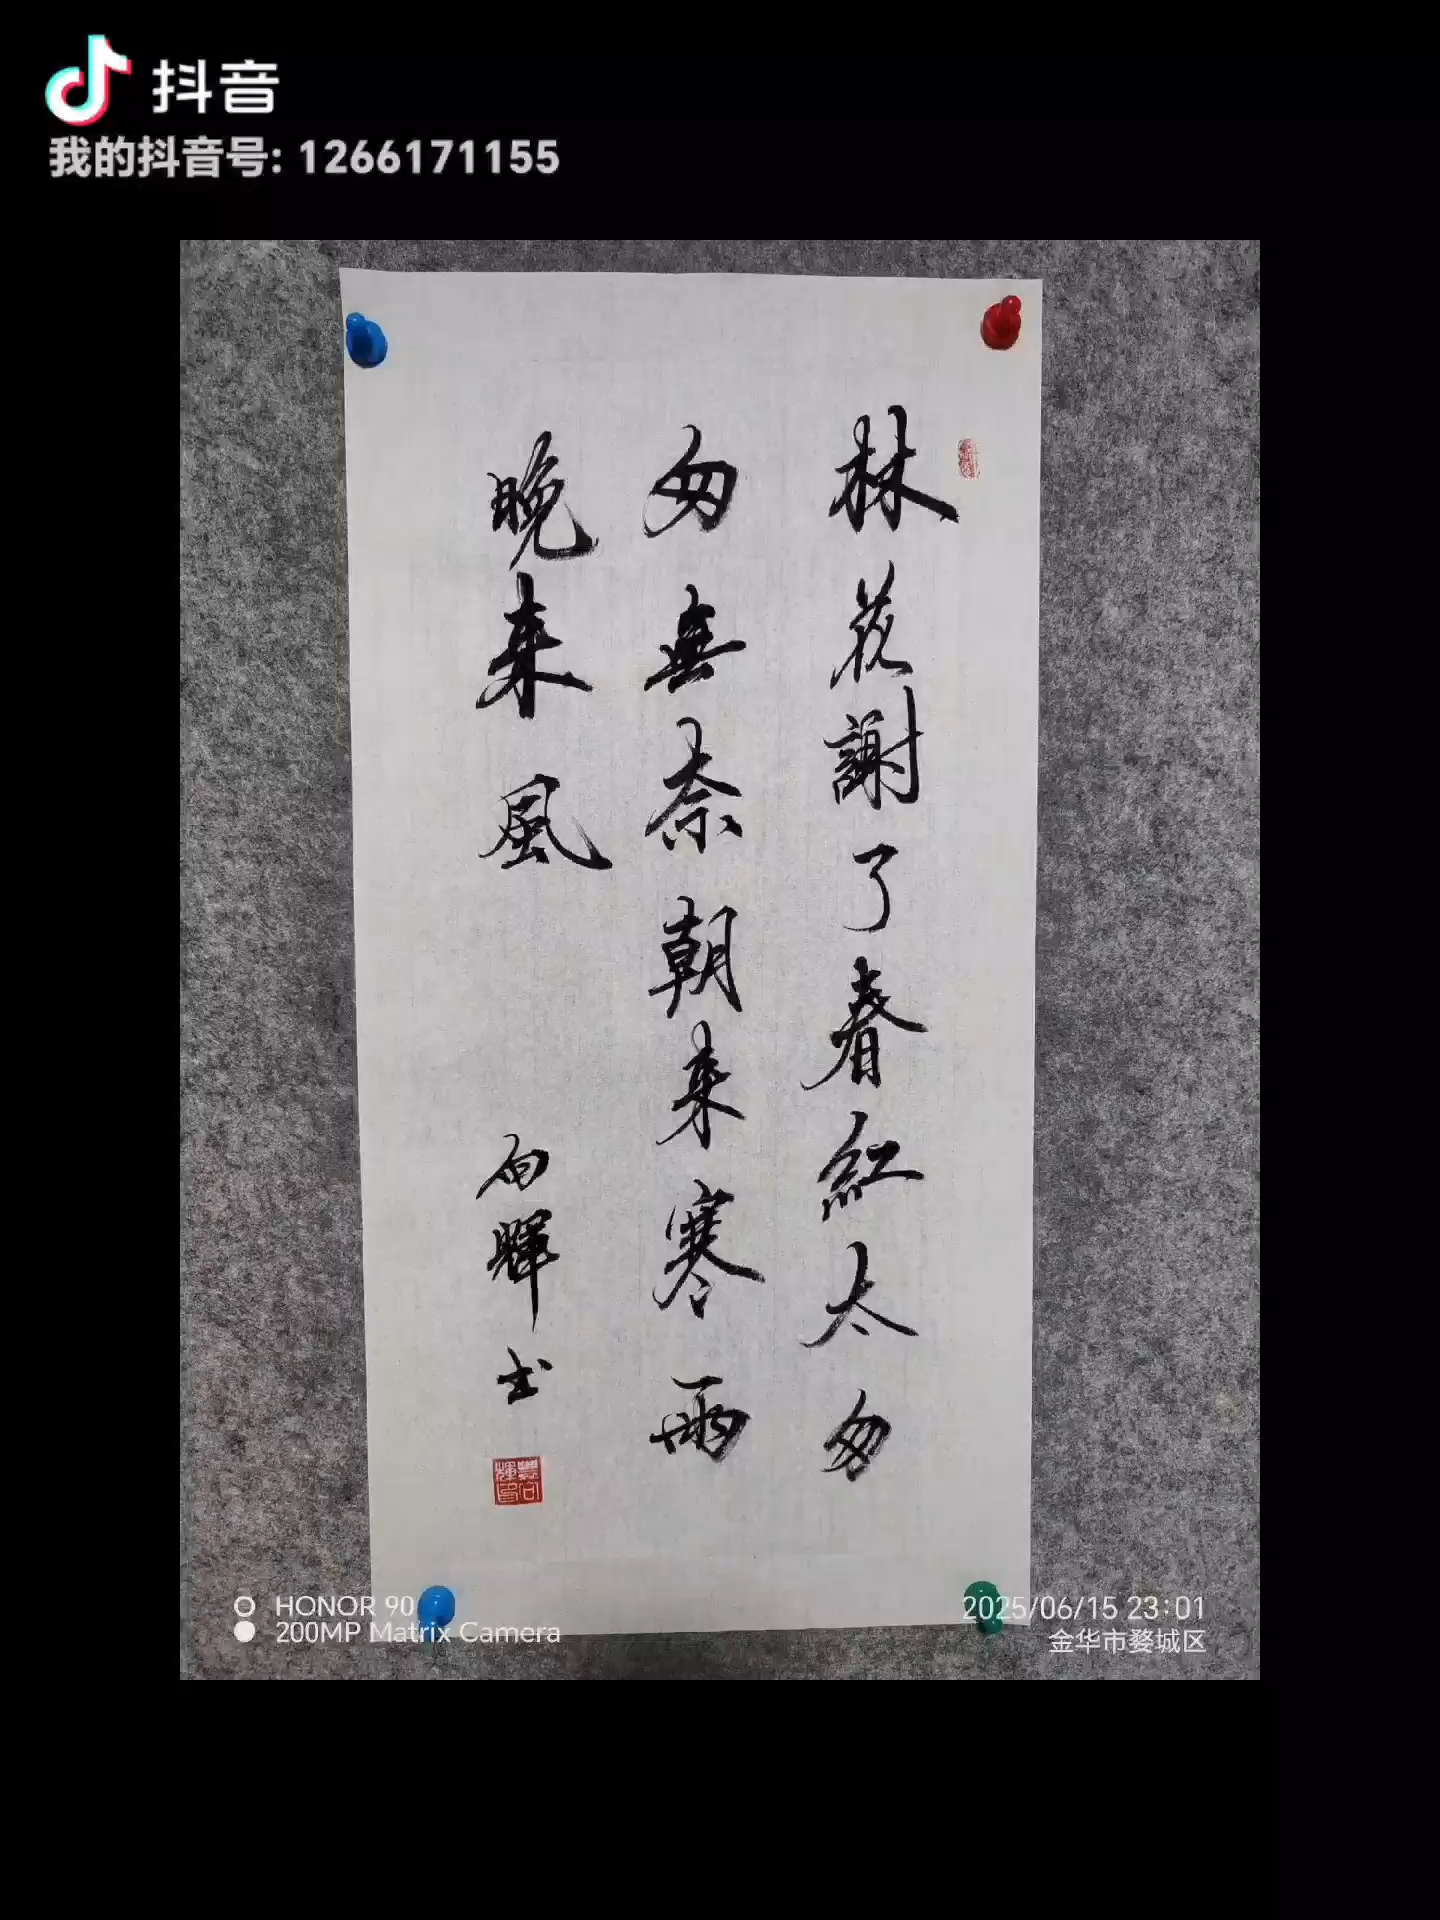 抖音
我的抖音号: 1266171155
林花謝了春紅太匆
匆無奈朝来寒雨
晚来風
向暉书
HONOR 90
200MP Matrix Camera
2025/06/15 23:01
金华市婺城区